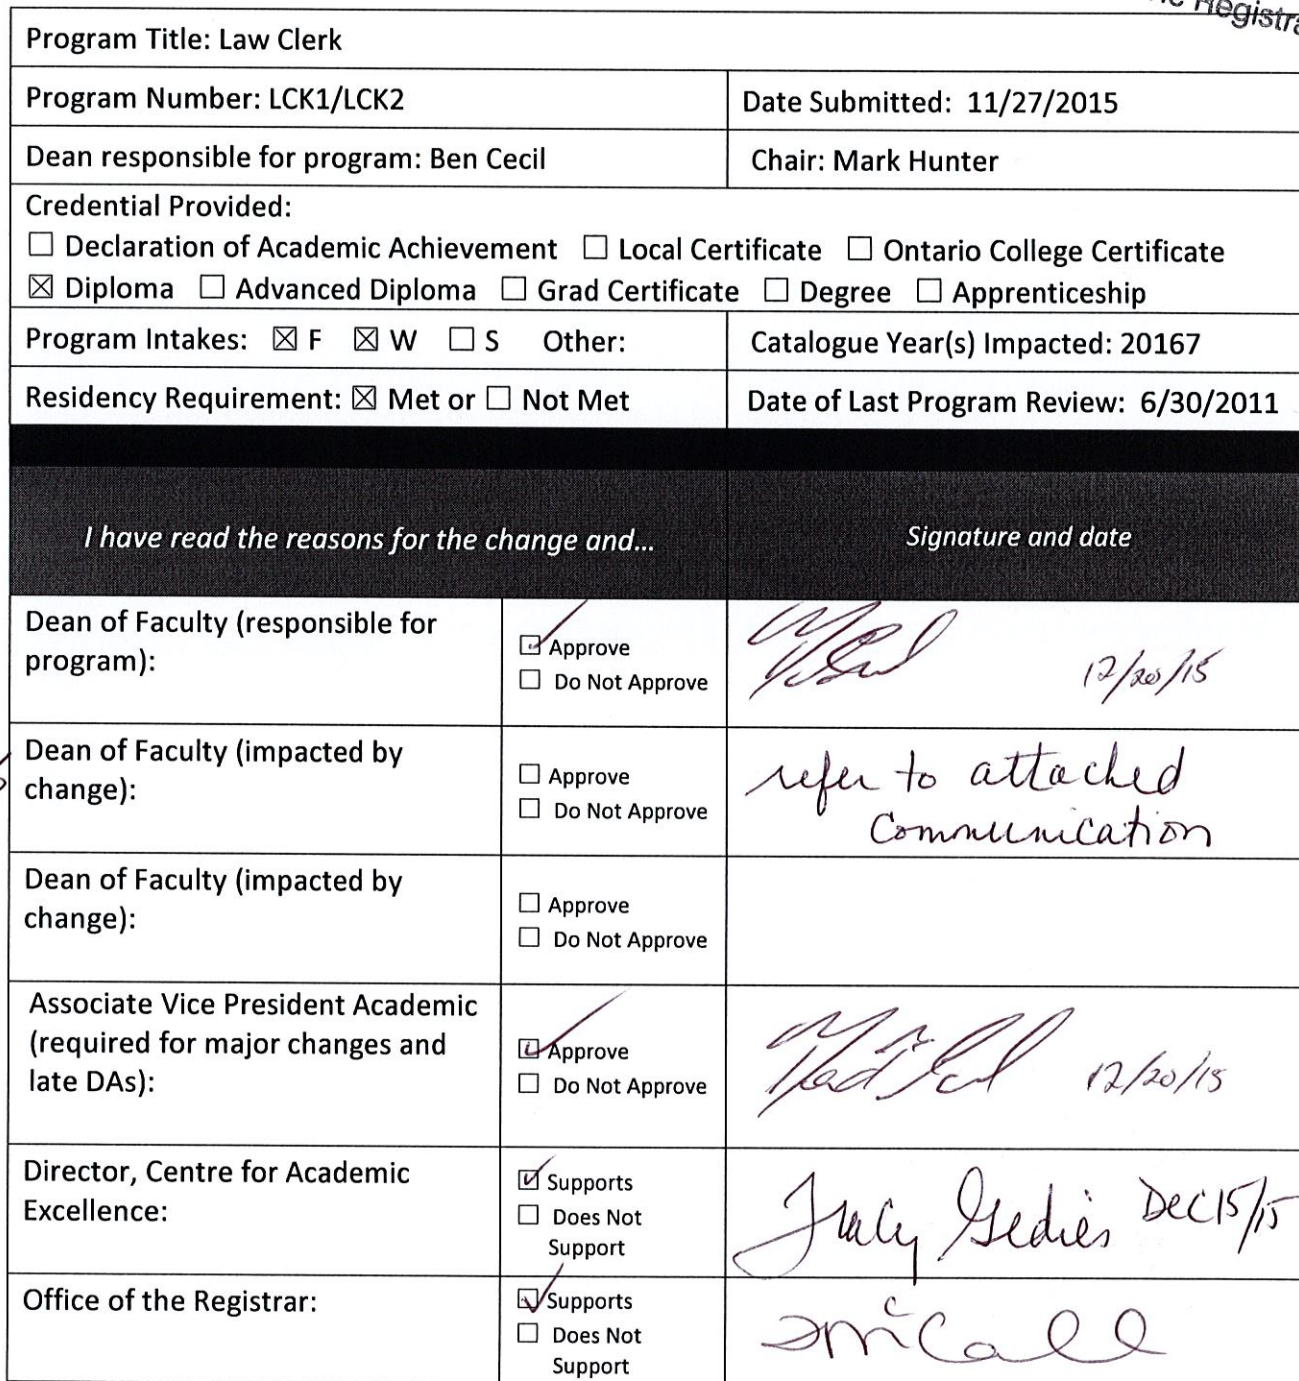 Registra
Program Title: Law Clerk
Program Number: LCK1/LCK2
Date Submitted: 11/27/2015
Dean responsible for program: Ben Cecil
Chair: Mark Hunter
Credential Provided:
☐ Declaration of Academic Achievement ☐ Local Certificate ☐ Ontario College Certificate
☒ Diploma ☐ Advanced Diploma ☐ Grad Certificate ☐ Degree ☐ Apprenticeship
Program Intakes: ☒ F ☒ W ☐ S Other:
Catalogue Year(s) Impacted: 20167
Residency Requirement: ☒ Met or ☐ Not Met
Date of Last Program Review: 6/30/2011
I have read the reasons for the change and...
Signature and date
Dean of Faculty (responsible for
program):
☑ Approve
☐ Do Not Approve
12/20/15
Dean of Faculty (impacted by
change):
☐ Approve
☐ Do Not Approve
refer to attached
Communication
Dean of Faculty (impacted by
change):
☐ Approve
☐ Do Not Approve
Associate Vice President Academic
(required for major changes and
late DAs):
☑ Approve
☐ Do Not Approve
12/20/15
Director, Centre for Academic
Excellence:
☑ Supports
☐ Does Not
Support
Tracy Gedies Dec 15/15
Office of the Registrar:
☑ Supports
☐ Does Not
Support